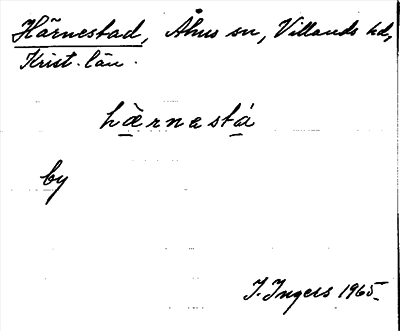 Härnestad, Åhus sn, Villands hd,
Krist. län.
hæ̀rnəstá
by
I. Ingers 1965